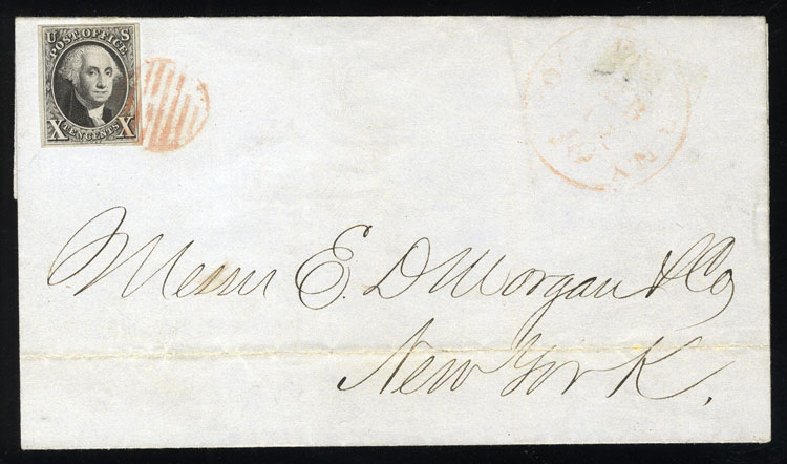 U S
POST OFFICE
X TEN CENTS X
Messrs E. D Morgan & Co
New York.